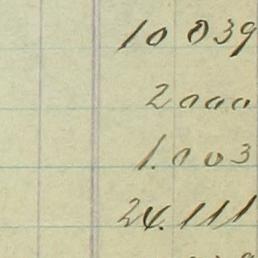 10 039
2000
1.003
24.111